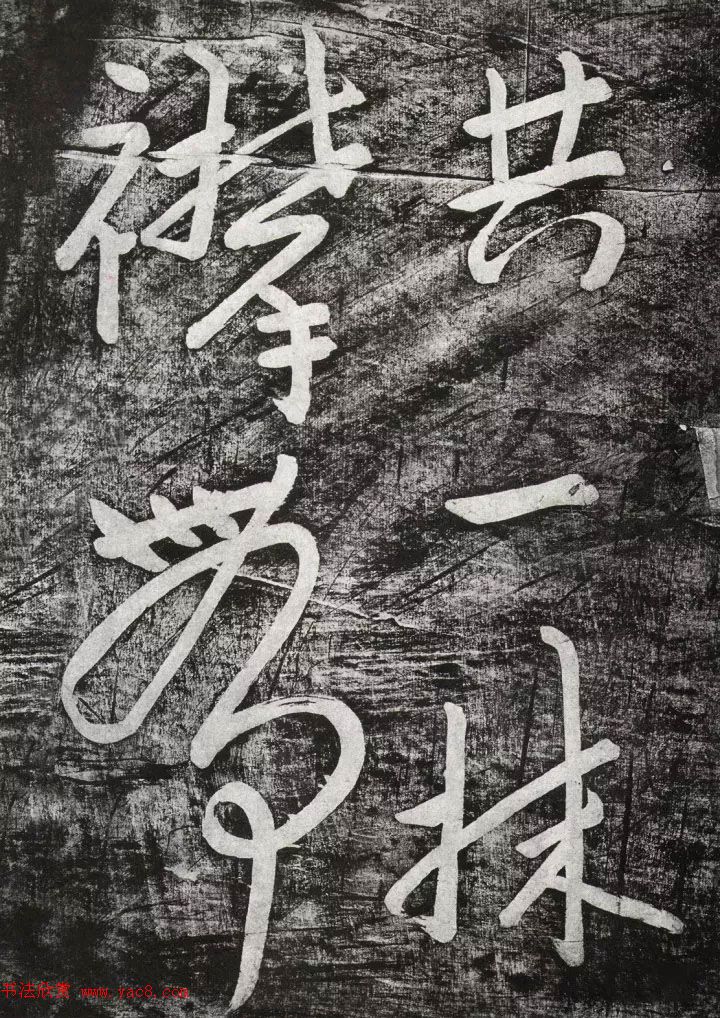 共一抹
襟帶
书法欣赏 www.yac8.com